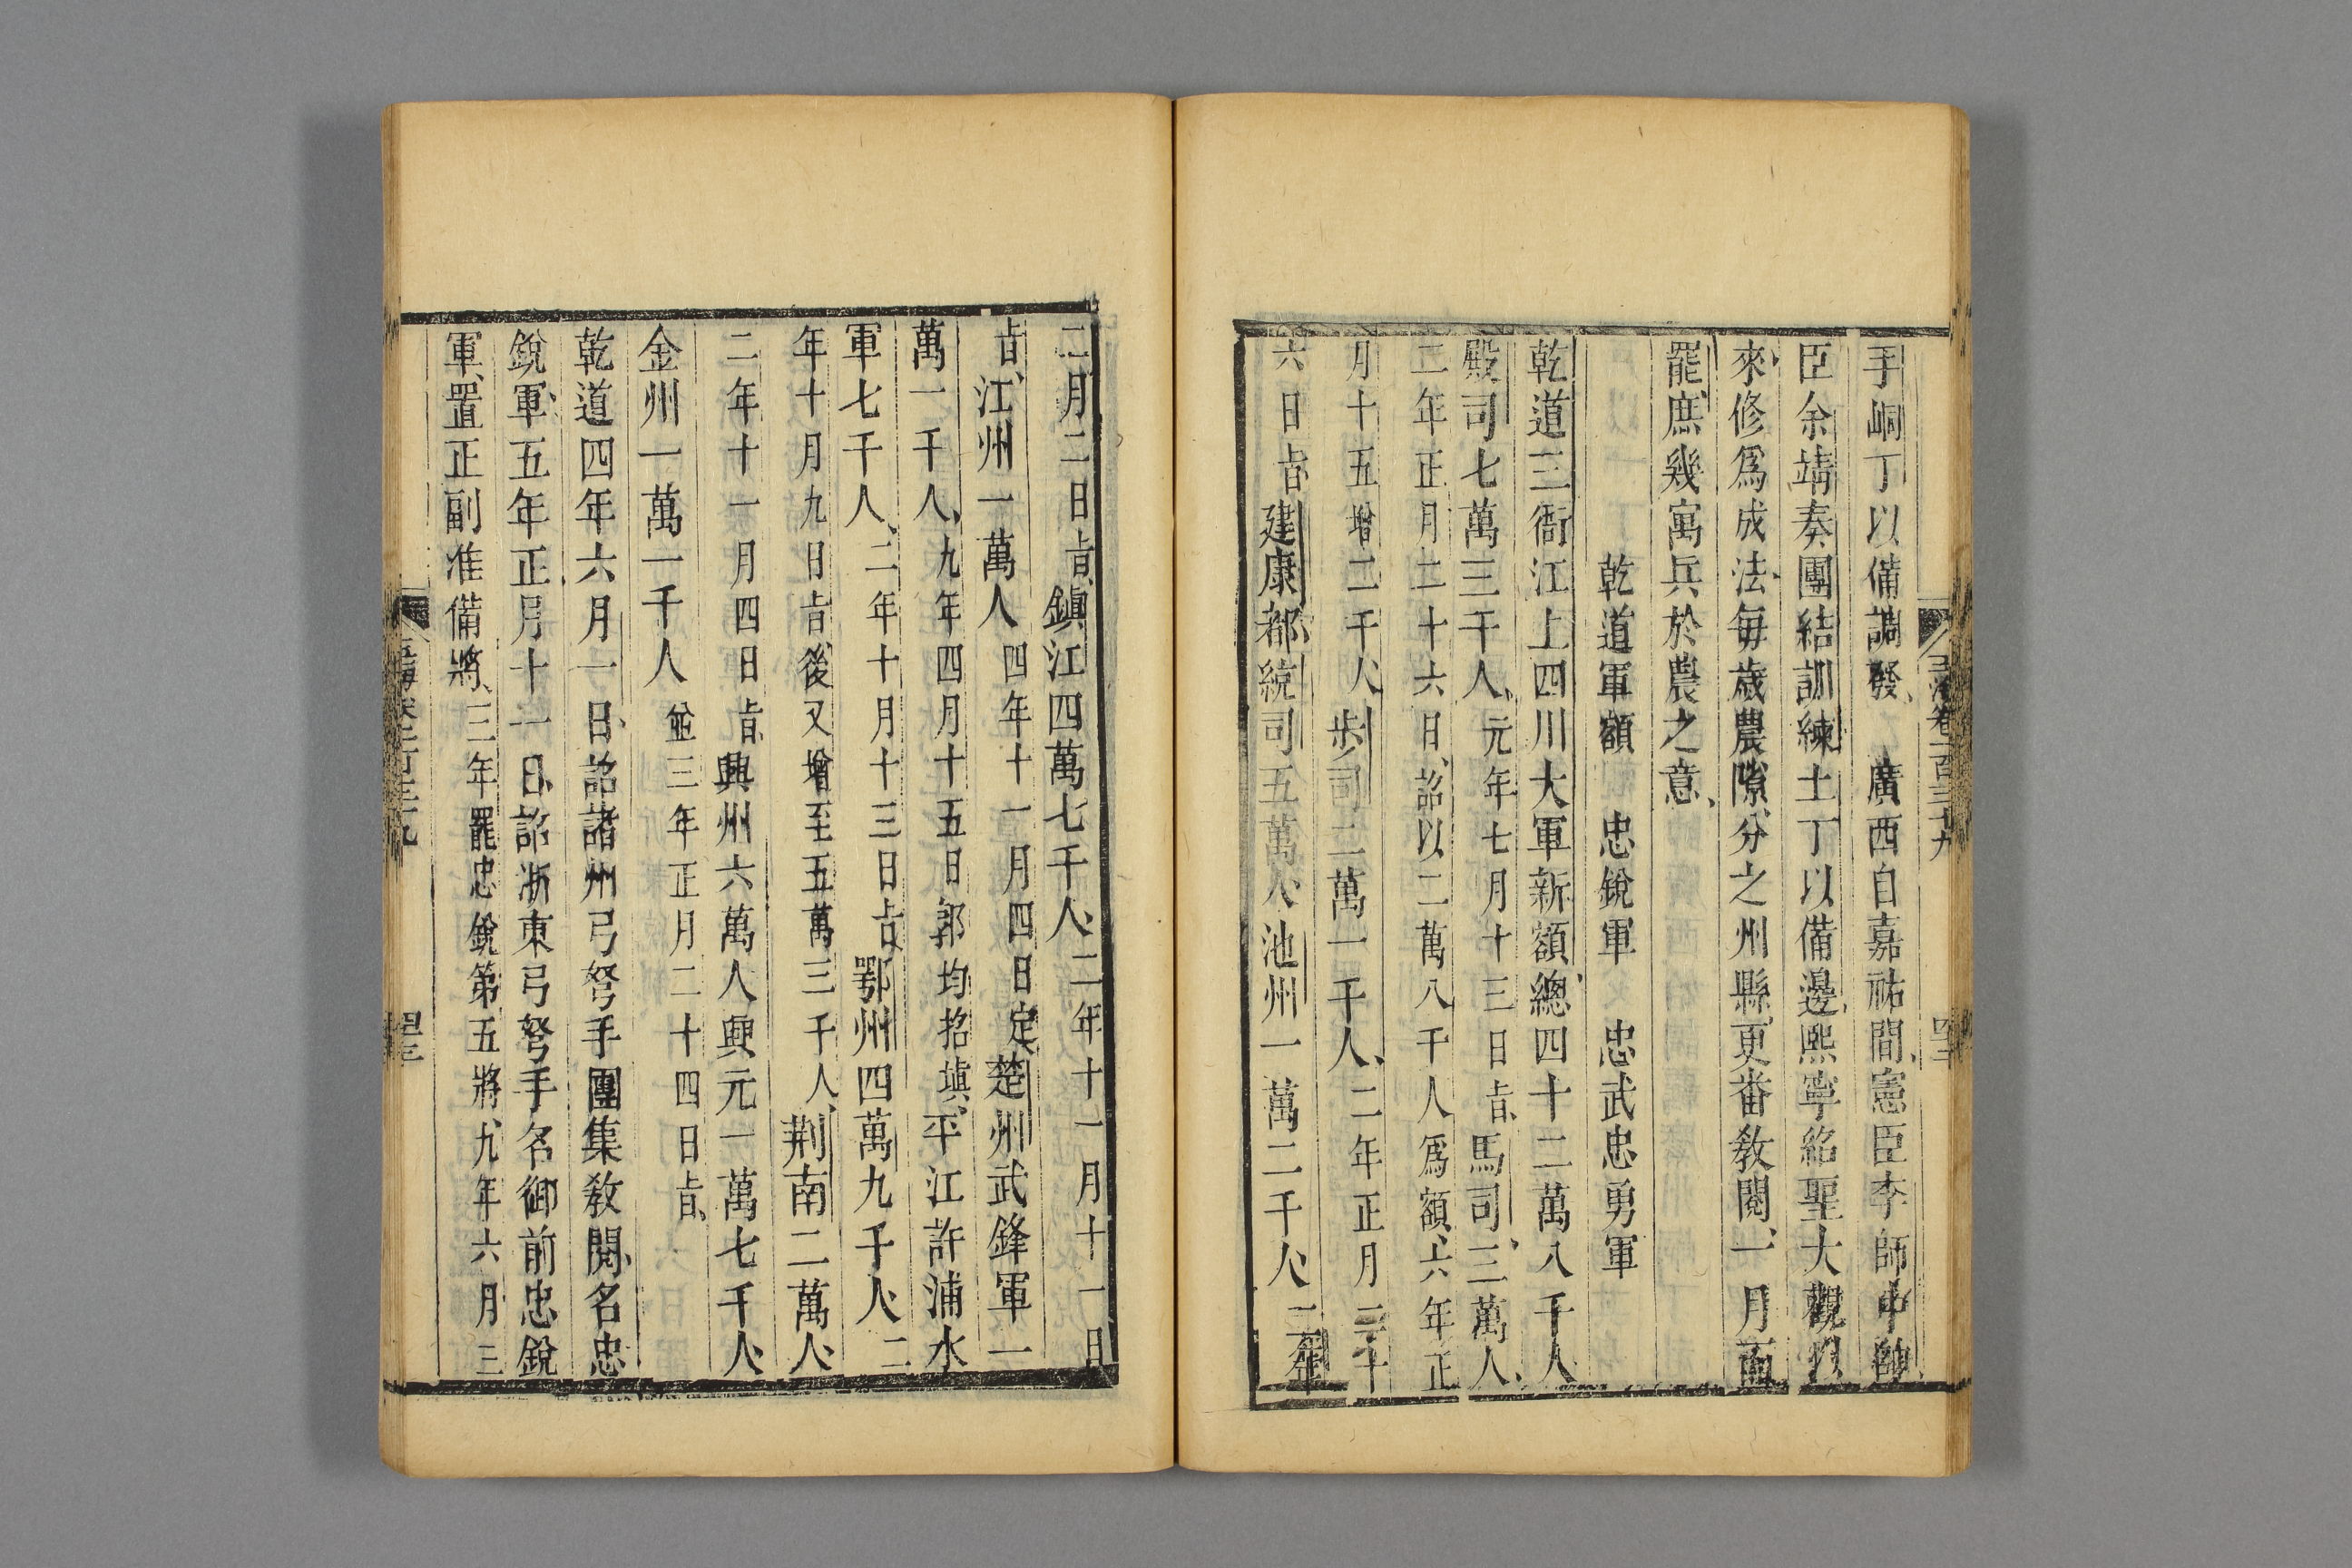 玉海卷一百三十九
手峒丁以備調發、廣西自嘉祐間、憲臣李師中帥
臣余靖奏團結訓練土丁以備邊、熙寧紹聖大觀以
來修爲成法、每歲農隙、分之州縣、更番敎閱、一月而
罷、庶幾寓兵於農之意、
乾道軍額 忠銳軍 忠武忠勇軍
乾道三衙江上四川大軍新額、總四十二萬八千人
殿司七萬三千人、元年七月十三日㫖、馬司、三萬人、
二年正月二十六日、詔以二萬八千人爲額、六年正
月十五增二千人、步司二萬一千人、二年正月二十
六日㫖、建康都統司五萬人、池州一萬二千人、二年
二月二日㫖、鎮江四萬七千人、二年十一月十一日
㫖、江州一萬人四年十一月四日定、楚州武鋒軍一
萬一千人、九年四月十五日郭均招塡、平江許浦水
軍七千人、二年十月十三日㫖、鄂州四萬九千人、二
年十月九日㫖、後又增至五萬三千人、荆南二萬人、
二年十一月四日㫖、興州六萬人興元一萬七千人、
金州一萬一千人並三年正月二十四日㫖、
乾道四年六月一日、詔諸州弓弩手團集敎閱、名忠
銳軍、五年正月十一日、詔浙東弓弩手名御前忠銳
軍、置正副准備將、三年罷忠銳第五將、九年六月三